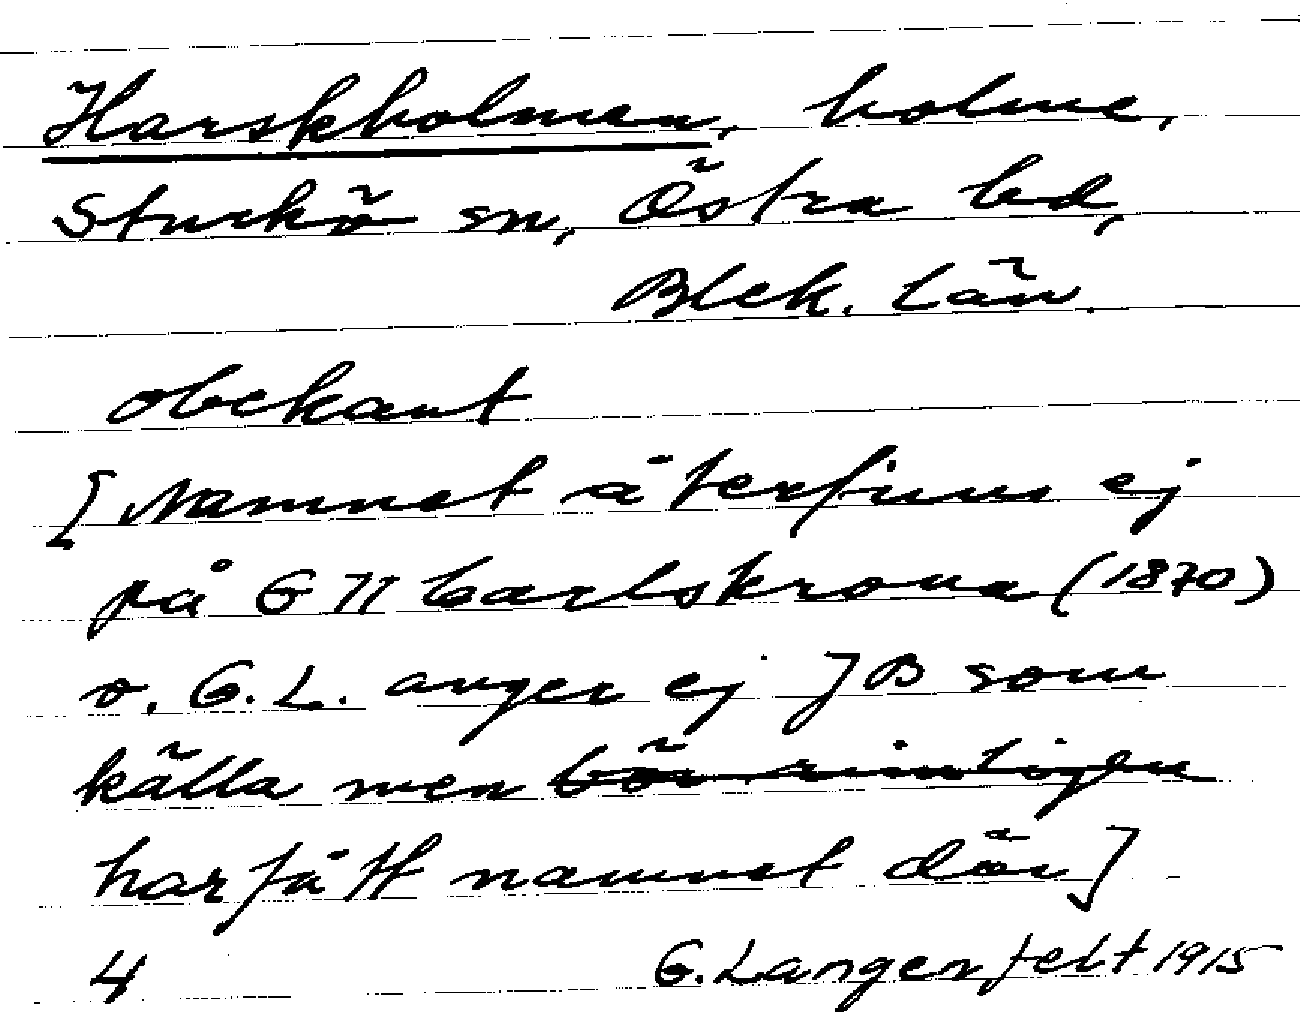 Harskholmen, holme,
Sturkö sn, Östra hd,
Blek. län.
obekant
[Namnet återfinns ej
på G II Carlskrona (1870)
o. G. L. anger ej JB som
källa men bör rimligen
har fått namnet där]
4 G. Langenfelt 1915